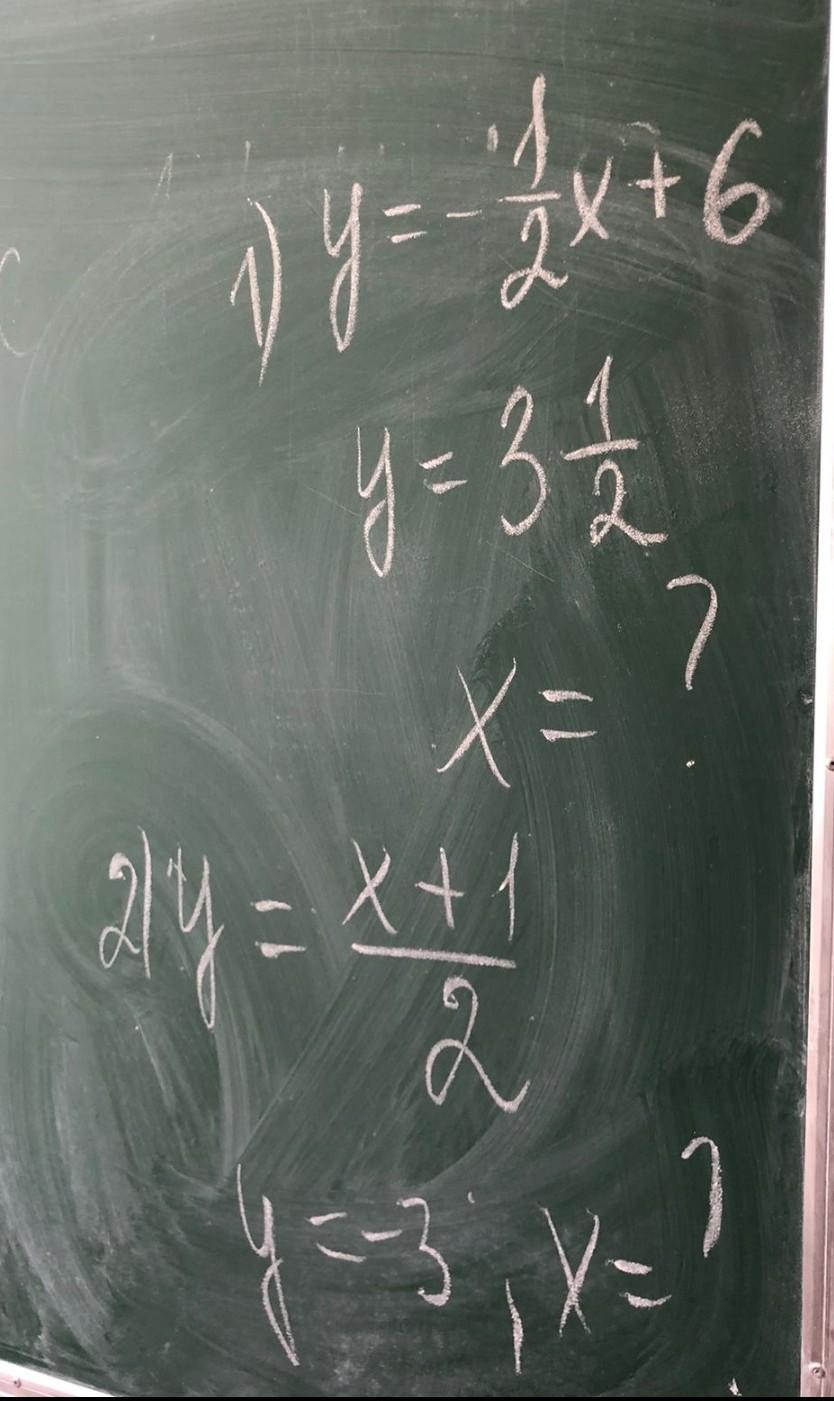 1) y = -1/2 x + 6
y = 3 1/2
x = ?
2) y = (x + 1)/2
y = -3, x = ?